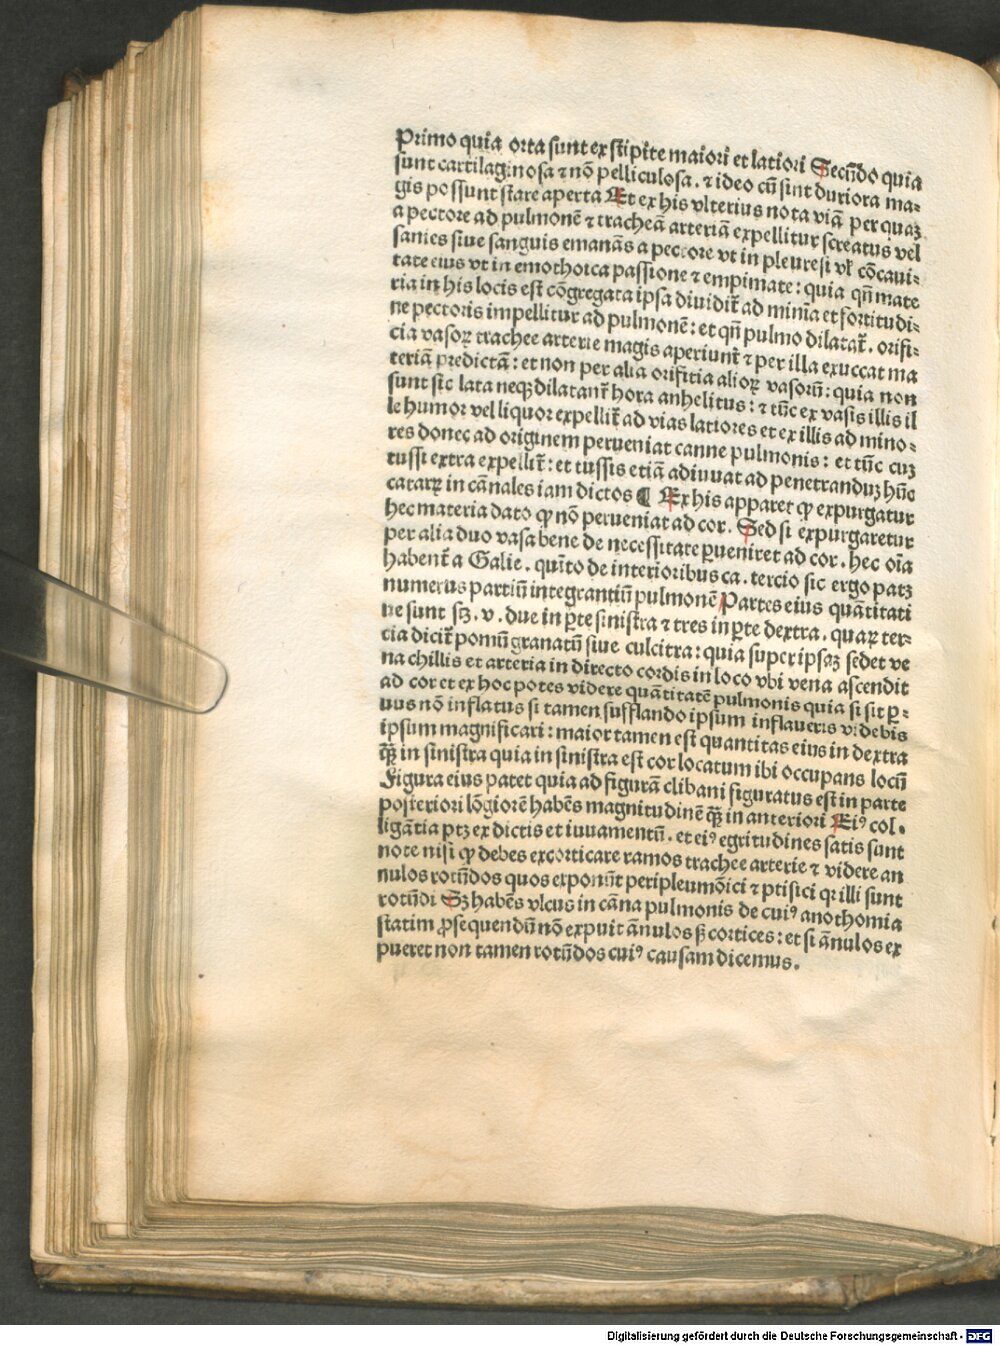 Primo quia orta sunt ex stipite maiori et latiori Secūdo quia
sunt cartilaginosa ⁊ nō pelliculosa. ⁊ ideo cū sint duriora ma⸗
gis possunt stare aperta Et ex his vlterius nota viā per quaꝫ
a pectore ad pulmonē ⁊ tracheā arteriā expellitur screatus vel
sanies siue sanguis emanās a pectore vt in pleuresi vł cōcaui⸗
tate eius vt in emothoica passione ⁊ empimate: quia qn̄ mate
ria in his locis est cōgregata ipsa diuidit̄ ad minīa et fortitudi⸗
ne pectoris impellitur ad pulmonē: et qn̄ pulmo dilatat̄. orifi⸗
cia vasoꝝ trachee arterie magis aperiunt̄ ⁊ per illa exuccat ma
teriā predictā: et non per alia orifitia alioꝝ vasorū: quia non
sunt sic lata neqꝫ dilatant̄ hora anhelitus: ⁊ tūc ex vasis illis il
le humor vel liquor expellit̄ ad vias latiores et ex illis ad mino⸗
res donec ad originem perueniat canne pulmonis: et tūc cuꝫ
tussi extra expellit̄: et tussis etiā adiuuat ad penetranduꝫ hūc
catarꝝ in cānales iam dictos ¶ Ex his apparet ꝙ expurgatur
hec materia dato ꝙ nō perueniat ad cor. Sed si expurgaretur
per alia duo vasa bene de necessitate ꝑueniret ad cor. hec oīa
habent̄ a Galie. quīto de interioribus ca. tercio sic ergo patꝫ
numerus partiū integrantiū pulmonē Partes eius quātitati
ue sunt sꝫ. v. due in ꝑte sinistra ⁊ tres in ꝑte dextra. quaꝝ ter⸗
cia dicit̄ pomū granatū siue culcitra: quia super ipsaꝫ sedet ve
na chillis et arteria in directo cordis in loco vbi vena ascendit
ad cor et ex hoc potes videre quātitatē pulmonis quia si sit ꝑ⸗
uus nō inflatus si tamen sufflando ipsum inflaueris videbis
ipsum magnificari: maior tamen est quantitas eius in dextra
qꝫ̄ in sinistra quia in sinistra est cor locatum ibi occupans locū
Figura eius patet quia ad figurā clibani figuratus est in parte
posteriori lōgiorē habēs magnitudinē qꝫ̄ in anteriori Eiꝰ col⸗
ligātia ptꝫ ex dictis et iuuamentū. et eiꝰ egritudines satis sunt
note nisi ꝙ debes excorticare ramos trachee arterie ⁊ videre an
nulos rotūdos quos exponūt peripleumōici ⁊ ptisici qꝛ illi sunt
rotūdi Sꝫ habēs vlcus in cāna pulmonis de cuiꝰ anothomia
statim ꝓsequendū nō expuit ānulos sꝫ cortices: et si ānulos ex
pueret non tamen rotūdos cuiꝰ causam dicemus.
Digitalisierung gefördert durch die Deutsche Forschungsgemeinschaft - DFG